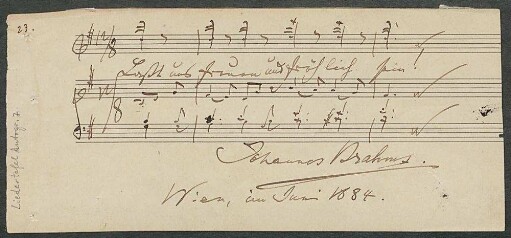 23.
12/8
Laßt uns freuen und fröhlich sein!
12/8
Johannes Brahms.
Wien, im Juni 1884.
Liedertafel Autogr. 7